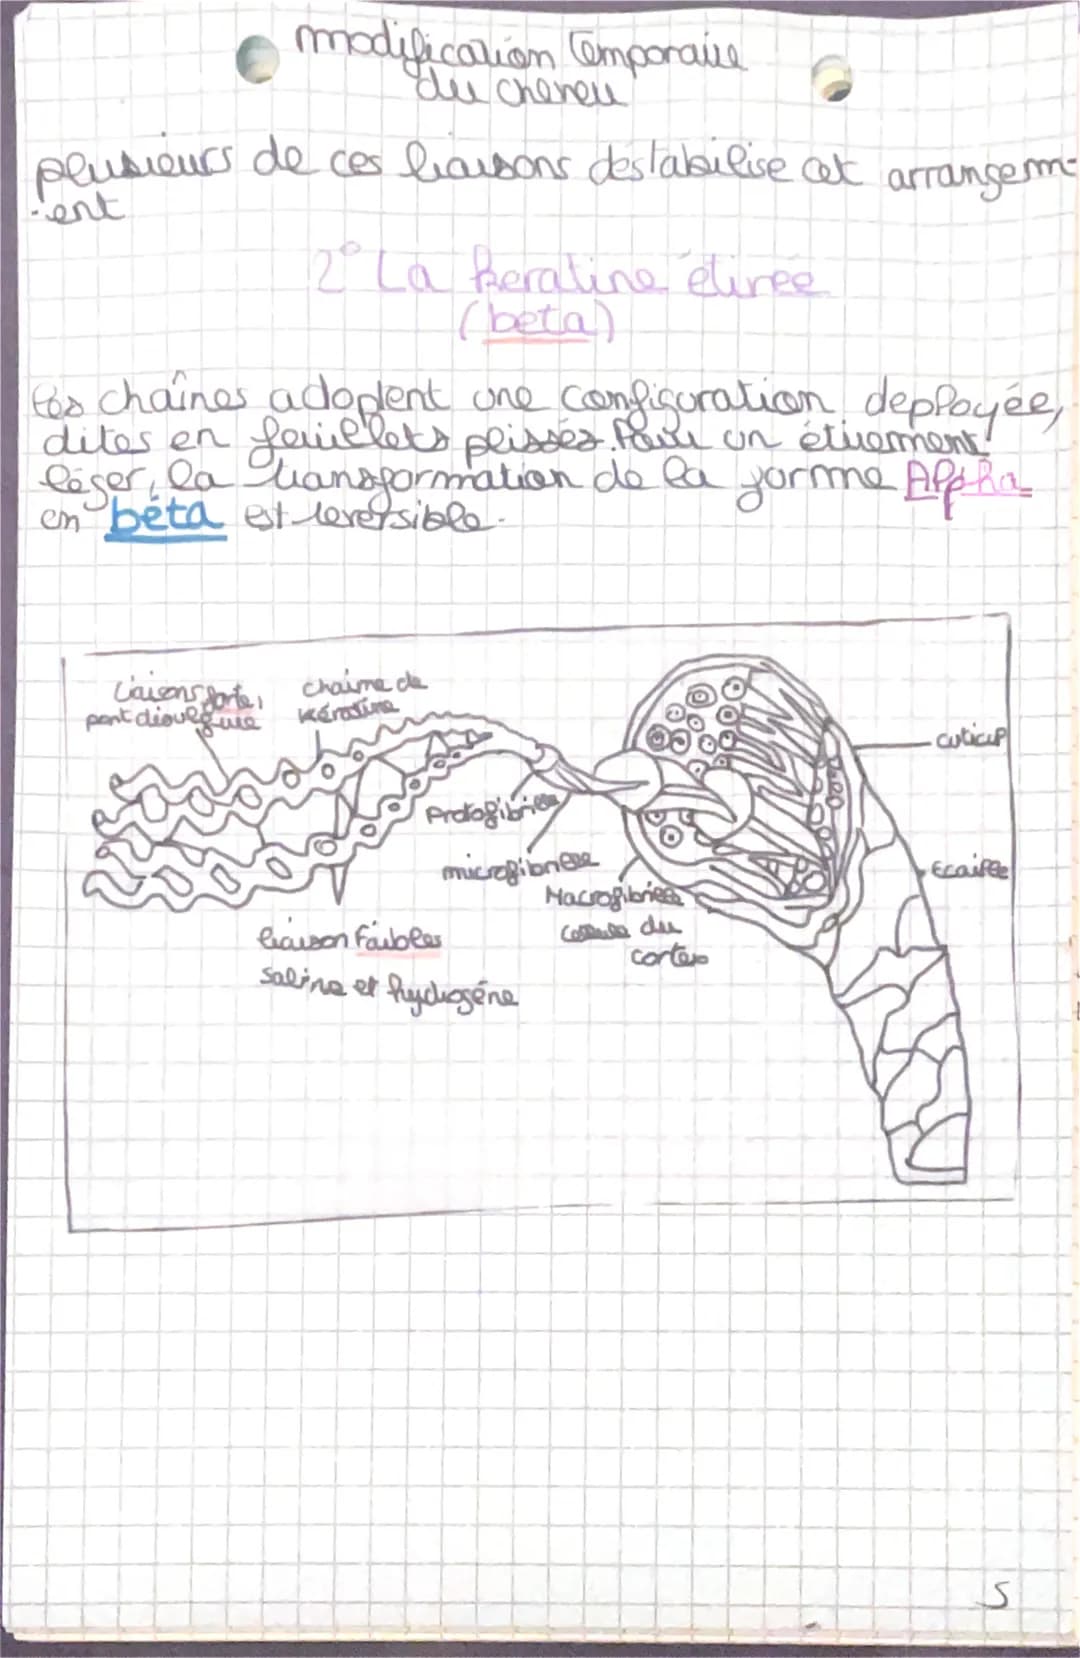 modification Temporaire
du cheveu
plusieurs de ces liaisons destabilise cet arrangem-
-ent
2° La Keratine étirée
(beta)
Les chaînes adoptent une configuration deployée,
dites en feuillets plissés. Pour un étirement
léger, la transformation de la forme Alpha
en béta est reversible.
Liaisons forte,
pont disulfure
chaine de
kératine
cuticul
Protofibrille
microfibrille
Ecaille
Macrofibrille
du
cortex
liaison faibles
saline et hydrogéne
5